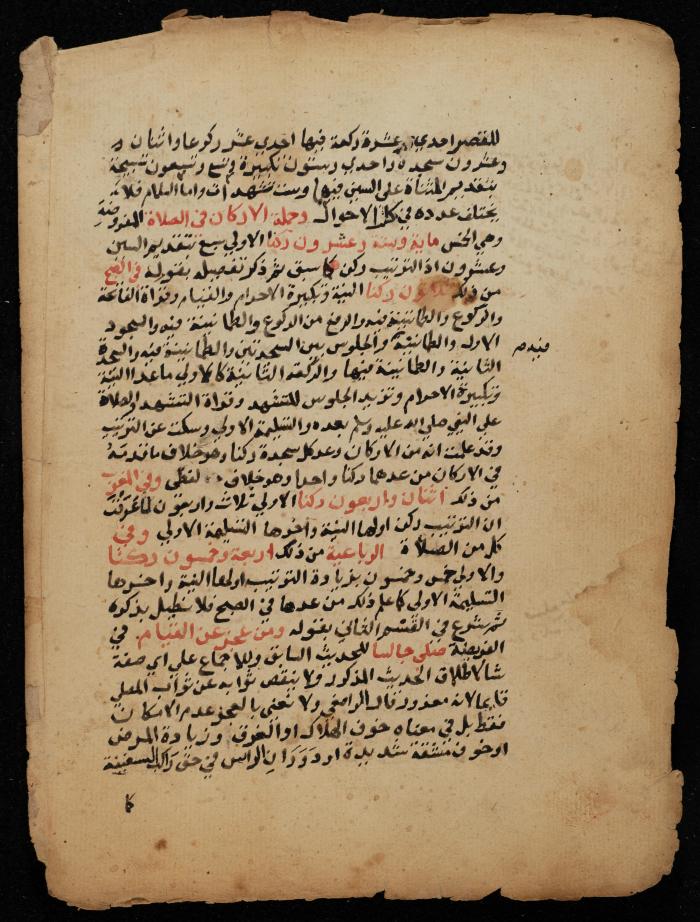 للقصر احدي عشرة ركعة فيها احدي عشر ركوعا واثنان و
وعشرون سجدة واحدي وستون تكبيرة وتسع وتسعون تسبيحة
بتقديم المثناة علي السين فيها وست تشهدات واما السلام فلانه
يختلف عدده في كل الاحوال وجملة الاركان في الصلاة المفروضة
وهي الخمس ماية وستة وعشرون ركنا الاولي سبع بتقديم السين
وعشرون اذ الترتيب ركن كما سبق ثم ذكر تفصيله بقوله في الصبح
من ذلك ثلاثون ركنا النية وتكبيرة الاحرام والقيام وقراة الفاتحة
والركوع والطمانينة فيه والرفع من الركوع والطمانينة فيه والسجود
الاول والطمانينة والجلوس بين السجدتين والطمانينة فيه والسجدة
فيه م
الثانية والطمانينة فيها والركعة الثانية كالاولي ماعدا النية
وتكبيرة الاحرام وتزيد الجلوس للتشهد وقراة التشهد والصلاة
علي النبي صلي الله عليه وسلم بعده والتسليمة الاولي وسكت عن الترتيب
وقد علمت انه من الاركان وعد كل سجدة ركنا وهو خلاف ما قدمه
في الاركان من عدهما ركنا واحدا وهو خلاف لفظي وفي المغرب
من ذلك اثنان واربعون ركنا الاولي ثلاث واربعون لما عرفت
ان الترتيب ركن اولها النية واخرها التسليمة الاولي وفي
كل من الصلاة الرباعية من ذلك اربعة وخمسون ركنا
والاولي خمس وخمسون بزيادة الترتيب اولها النية واخرها
التسليمة الاولي كما علم ذلك من عدها في الصبح فلا نطيل بذكره
ثم شرع في القسم الثاني بقوله ومن عجز عن القيام في
الفريضة صلي جالسا للحديث السابق وللاجماع علي اي صفة
شا لاطلاق الحديث المذكور ولا ينقص ثوابه عن ثواب المصلي
قايما لانه معذور قال الرافعي ولا نعني بالعجز عدم الامكان
فقط بل في معناه خوف الهلاك او الغرق وزيادة المرض
او خوف مشقة شديدة او دوران الراس في حق راكب السفينة
كا